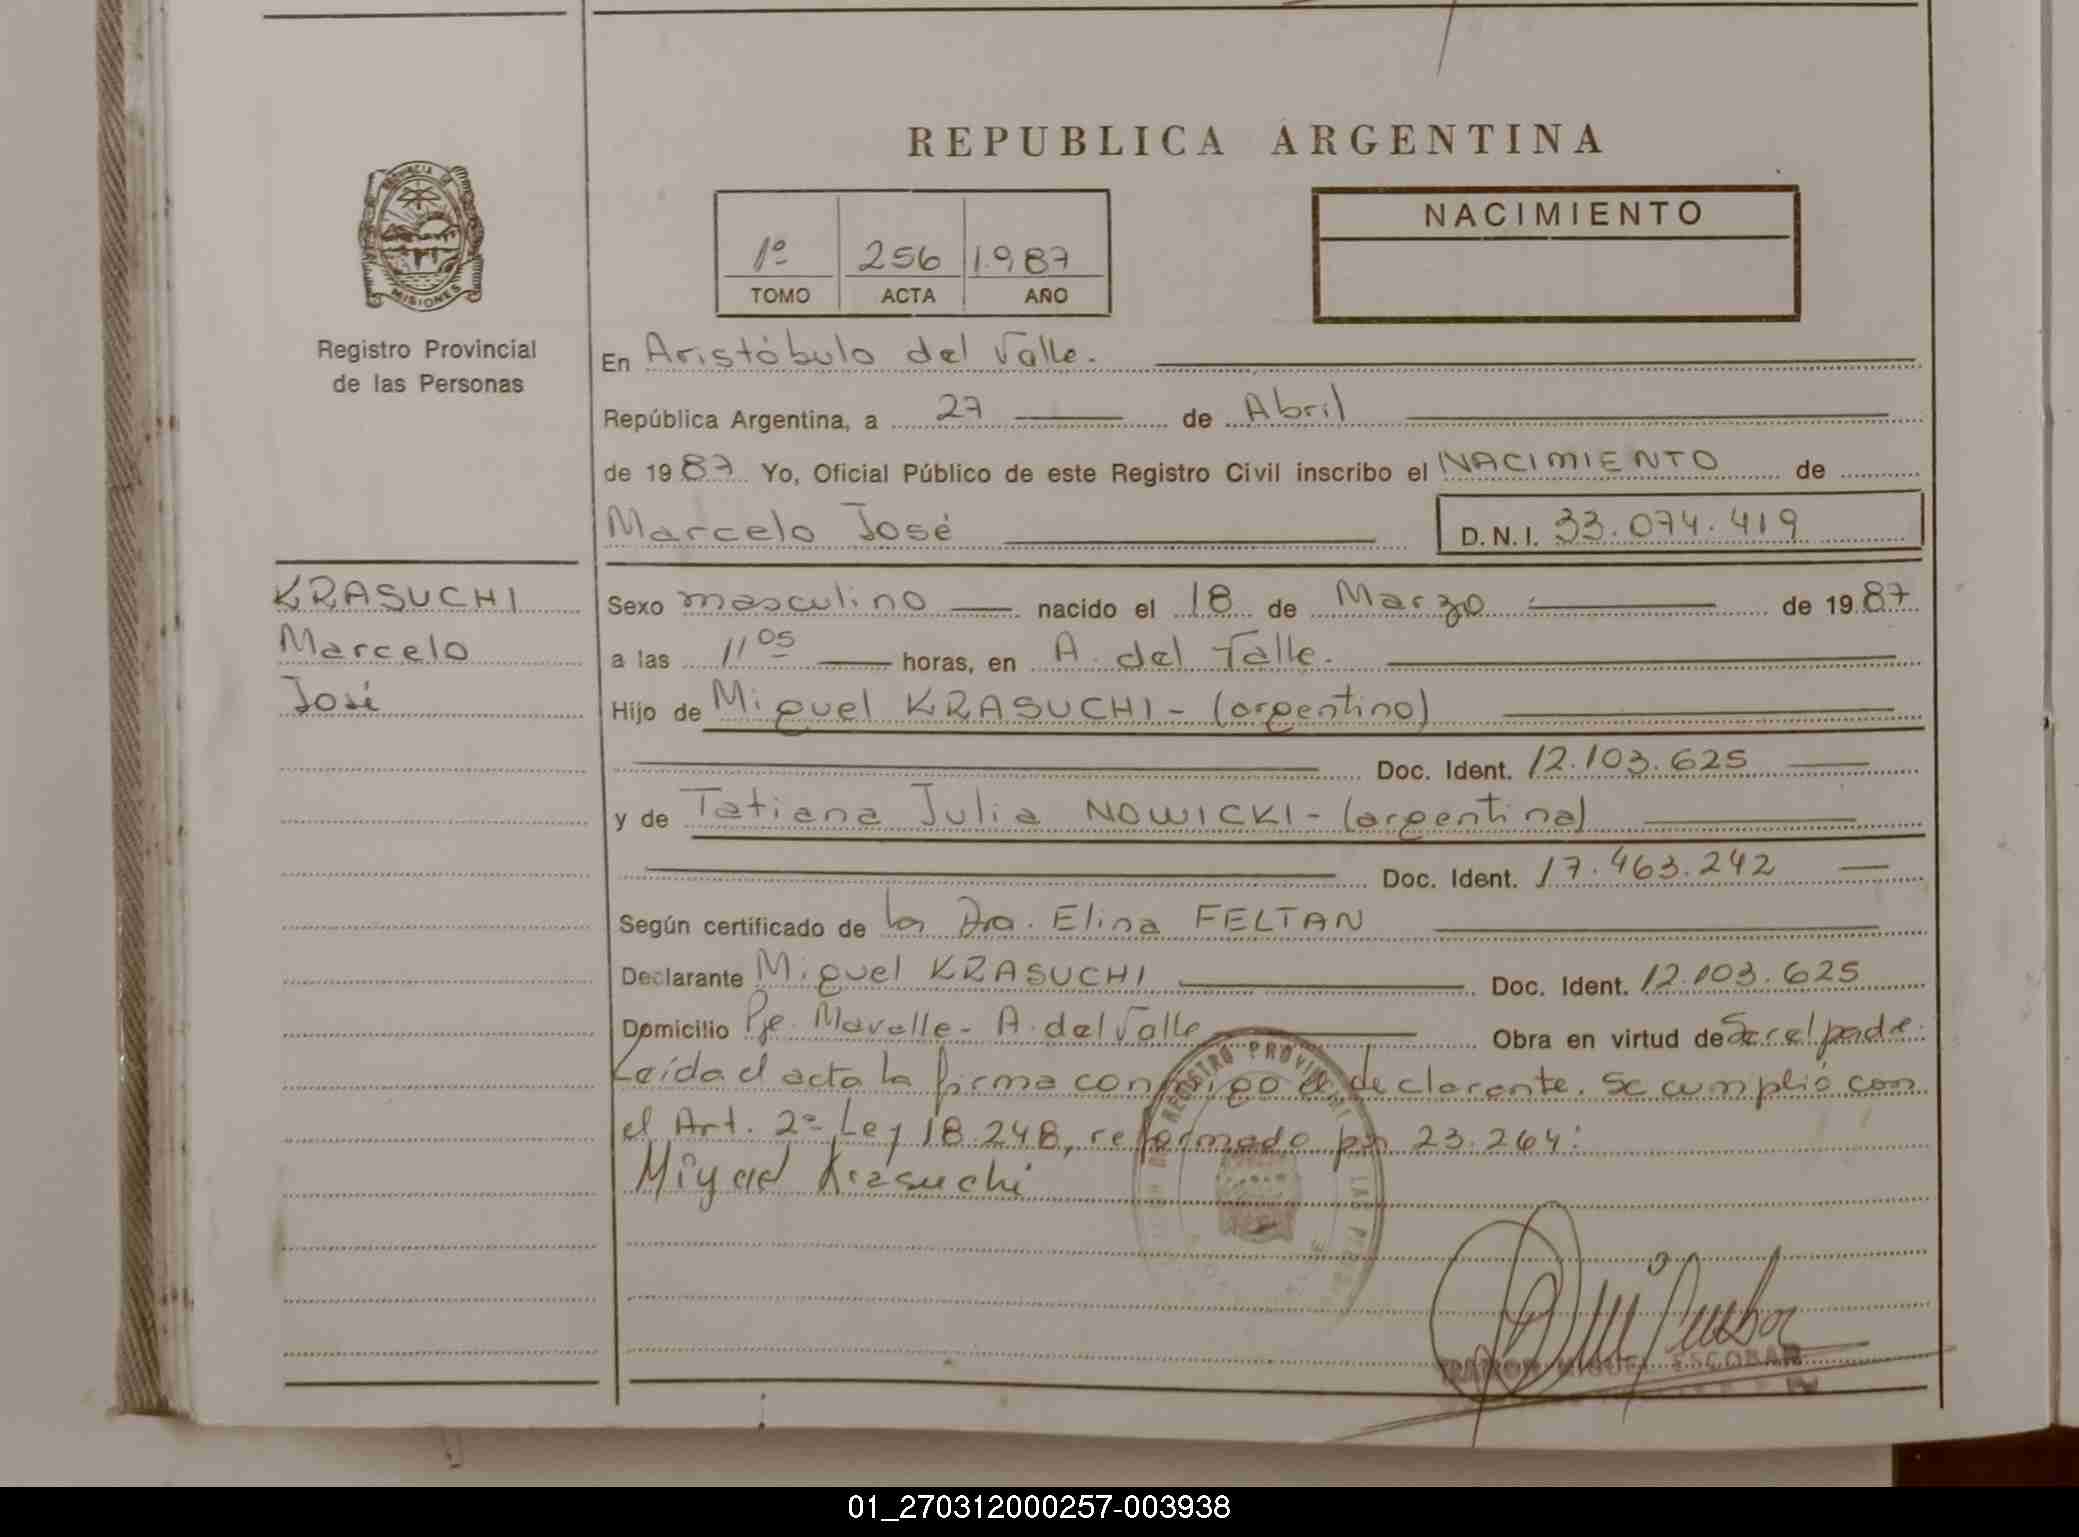 REPUBLICA ARGENTINA
PROVINCIA DE
MISIONES
Registro Provincial
de las Personas
1º 256 1.987
TOMO ACTA AÑO
NACIMIENTO
En Aristóbulo del Valle.
República Argentina, a 27 de Abril
de 1987 Yo, Oficial Público de este Registro Civil inscribo el NACIMIENTO de
Marcelo José D.N.I. 33.074.419
KRASUCHI
Marcelo
José
Sexo masculino nacido el 18 de Marzo de 1987
a las 11 05 horas, en A. del Valle.
Hijo de Miguel KRASUCHI - (argentino)
Doc. Ident. 12.103.625
y de Tatiana Julia NOWICKI - (argentina)
Doc. Ident. 17.463.242
Según certificado de la Dra. Elina FELTAN
Declarante Miguel KRASUCHI Doc. Ident. 12.103.625
Domicilio Pje. Mavalle - A. del Valle Obra en virtud de Ser el padre.
Leída el acta la firma conmigo el declarante. Se cumplió con
el Art. 2º Ley 18.248, reformado por 23.264:
Miguel Krasuchi
REGISTRO PROVINCIAL LAS
RAMON MIGUEL ESCOBAR
01_270312000257-003938